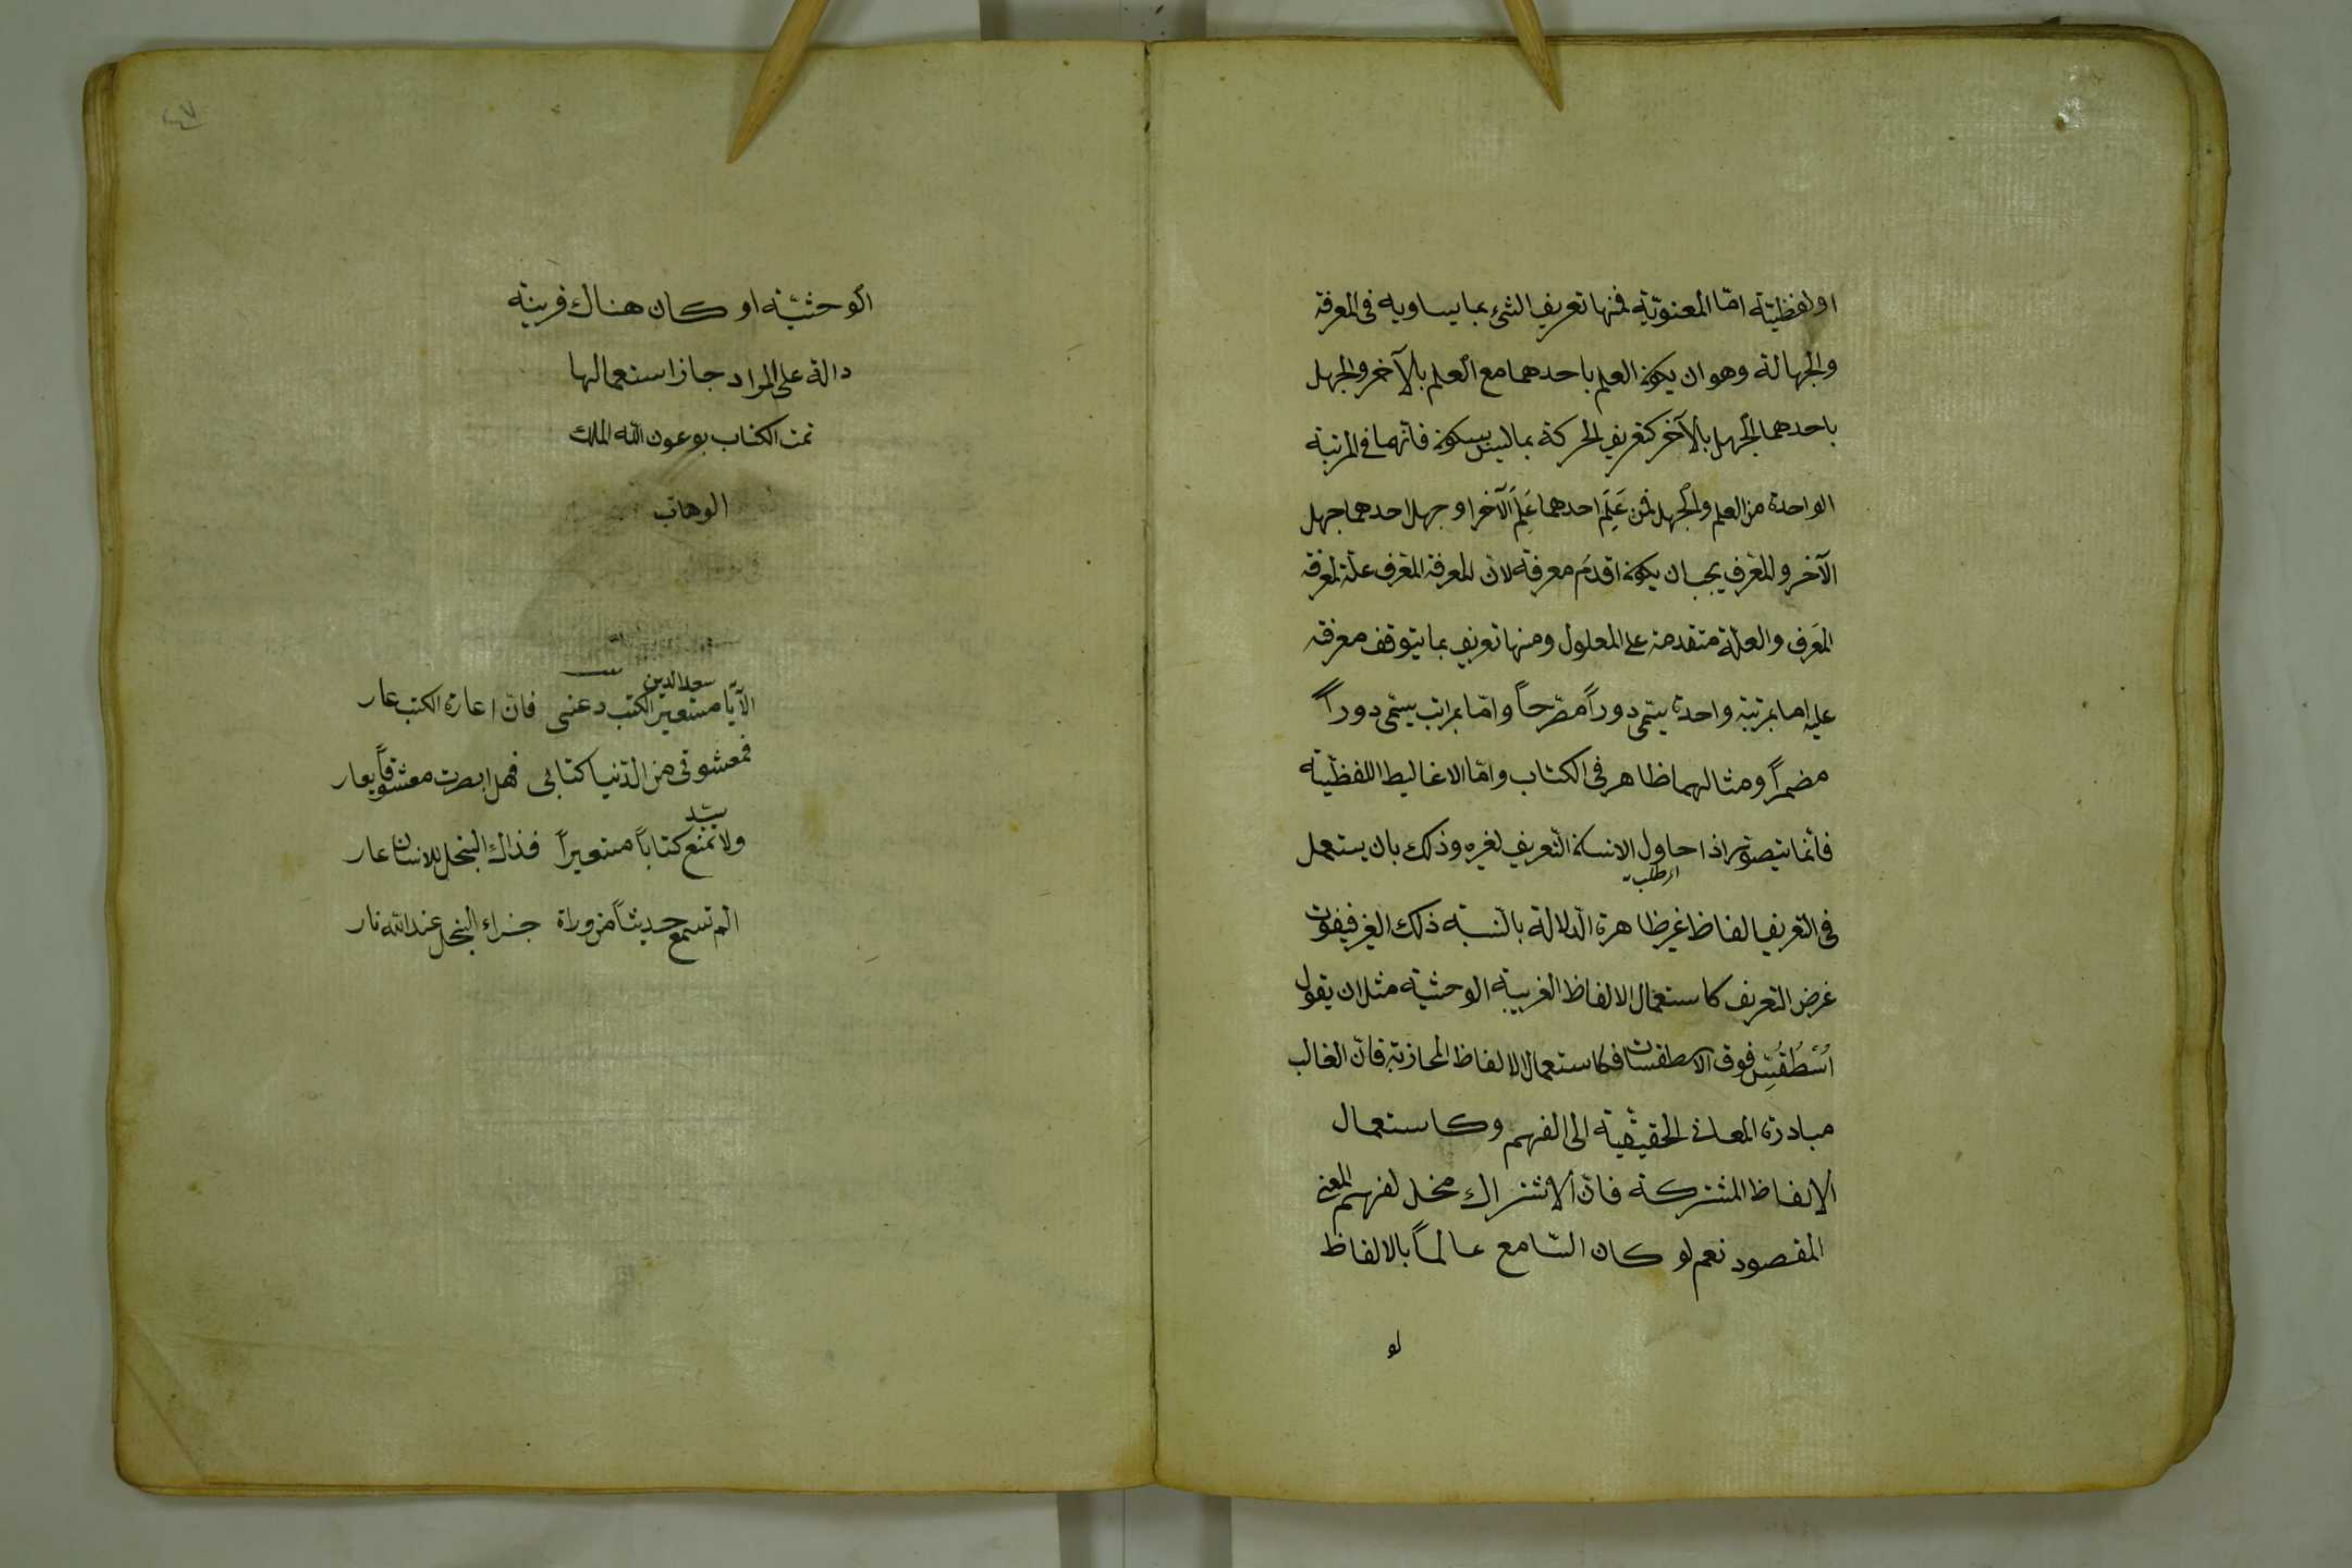 او لفظيّة امّا المعنوّية فمنها تعريف الشئ بما يساويه فى المعرفة
والجهالة وهو ان يكون العلم باحدهما مع العلم بالآخر والجهل
باحدهما الجهل بالآخر كتعريف الحركة بما ليس بسكون فانّهما فى المرتبة
الواحدة من العلم والجهل فمن عَلِمَ احدهما عَلِمَ الآخر او جهل احدهما جهل
الآخر والمعّرف يجب ان يكون اقدمَ معرفة لان المعرفة المعّرف علّة لمعرفة
المعَرف والعلّة متقدمة على المعلول ومنها تعريف بما يتوقف معرفته
عليه اما بمرتبة واحدة يسّمى دوراً مصّرحاً وامّا بمراتب يسّمى دوراً
مضمراً ومثالهما ظاهر فى الكتاب وامّا الاغاليط اللفظيّة
فانّما يتصوّر اذا حاول الانسان التّعريف لغيره وذلك بان يستعمل
اى طلب
فى التعريف الفاظ غير ظاهرة الّدلالة بالنّسبة ذلك الغير فيفوت
غرض التعريف كاستعمال الالفاظ الغريبة الوحشّية مثل ان يقول
اُسْطُقُسّ فوق الاسطقسات فكاستعمال الالفاظ المجازيّة فانّ الغالب
مبادرة المعانى الحقيقّية الى الفهم وكاستعمال
الالفاظ المشتركة فانّ الاشتراك مخل لفهم المعنى
المقصود نعم لو كان السّامع عالماً بالالفاظ
لو
٤٧
الوحشّية او كان هناك قرينة
دالة على المراد جاز استعمالها
تمت الكتاب بوعون اللّه الملك
الوهّاب
سعد الدين
الآيا مستعير الكتب دعنى فانّ اعارة الكتب عار
فمعشوقى من الدّنيا كتابى فهل ابصرت معشوقاً يعار
سيّد
ولا تمنع كتاباً مستعيراً فذاك البخل للانسان عار
الم تسمع حديثاً من وراة جزاء البخل عند اللّه نار